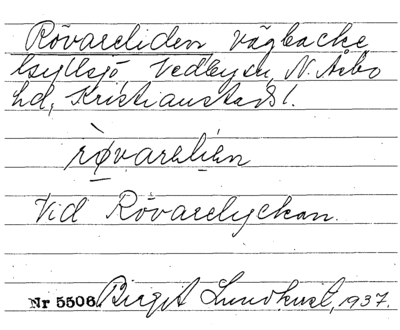 Rövareliden vägbacke
Gyllsjö, Vedby sn, N. Åsbo
hd, Kristianstads l.
rövareliən
Vid Rövarelyckan.
Nr 5506 Birgit Lundkvist, 1937.